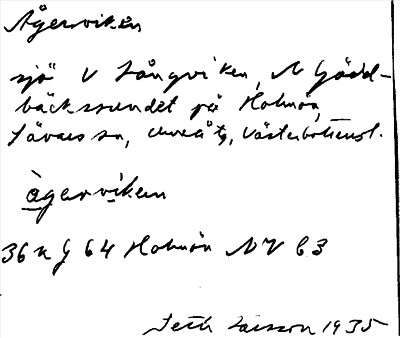 Ågerviken
sjö V Långviken, N Gädd-
bäckssundet på Holmön,
Sävars sn, Umeå ts, Västerbottensl.
àgerviken
36 n g 64 Holmön NV C3
Seth Larsson 1935